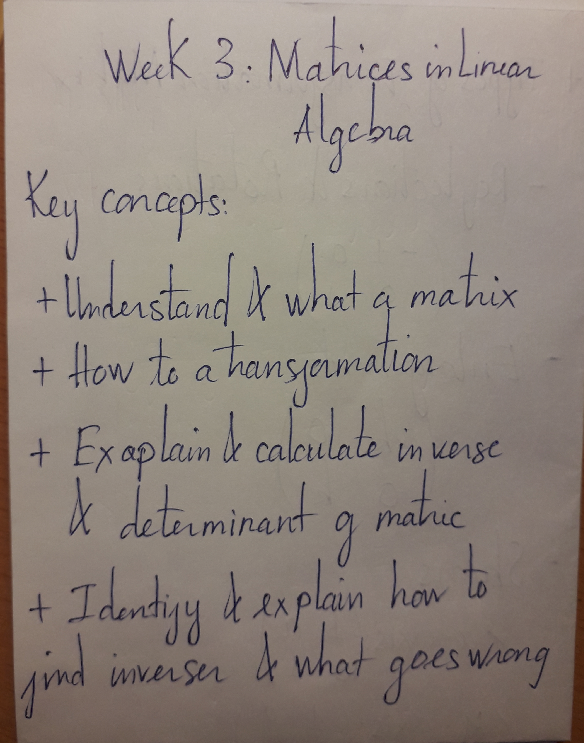 Week 3: Matrices in Linear
Algebra
Key concepts:
+ Understand & what a matrix
+ How to a transformation
+ Exaplain & calculate inverse
& determinant of matric
+ Identify & explain how to
find inverser & what goes wrong